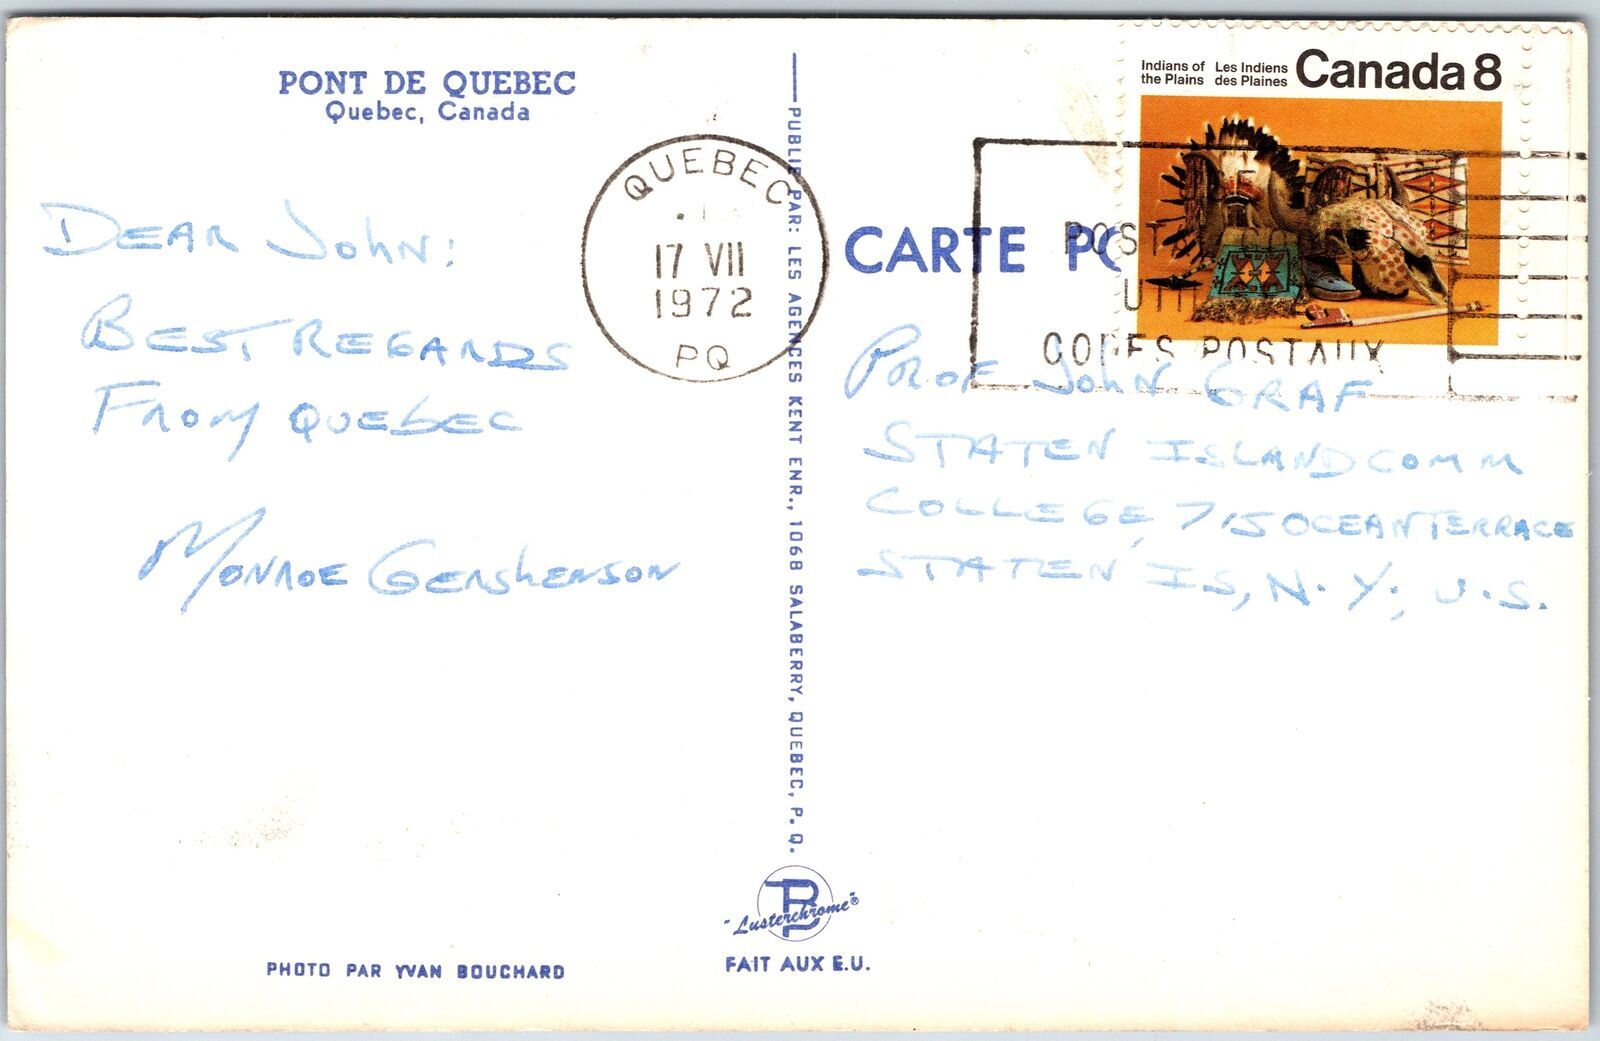 PONT DE QUEBEC
Quebec, Canada
DEAR JOHN:
BEST REGARDS
FROM QUEBEC
MONROE GERSHENSON
PHOTO PAR YVAN BOUCHARD
PUBLIE PAR: LES AGENCES KENT ENR., 1068 SALABERRY, QUEBEC, P.Q.
"Lusterchrome"®
FAIT AUX E.U.
QUEBEC
17 VII
1972
PQ
CARTE PO
Indians of the Plains
Les Indiens des Plaines
Canada 8
CODES POSTAUX
PROF JOHN GRAF
STATEN ISLAND COMM
COLLEGE, 715 OCEAN TERRACE
STATEN IS, N.Y., U.S.